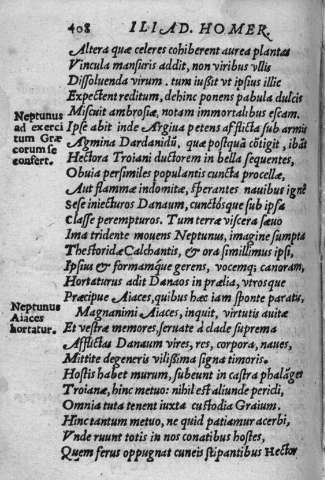 408 ILIAD. HOMER.
Altera quæ celeres cohiberent aurea plantas
Vincula mansuris addit, non viribus vllis
Dissoluenda virum. tum iußit vt ipsius illic
Expectent reditum, dehinc ponens pabula dulcis
Miscuit ambrosiæ, notam immortalibus escam.
Neptunus
ad exerci
tum Græ
corum se
confert.
Ipse abit inde Argiua petens afflicta sub armis
Agmina Dardanidũ, quæ postquã cõtigit, ibãt
Hectora Troiani ductorem in bella sequentes,
Obuia persimiles populantis cuncta procellæ,
Aut flammæ indomitæ, sperantes nauibus ignẽ
Sese iniecturos Danaum, cunctósque sub ipsa
Classe perempturos. Tum terræ viscera sæuo
Ima tridente mouens Neptunus, imagine sumpta
Thestoridæ Calchantis, & ora simillimus ipsi,
Ipsius & formamque gerens, vocemq; canoram,
Hortaturus adit Danaos in prælia, vtrosque
Præcipue Aiaces, quibus hæc iam sponte paratis,
Neptunus
Aiaces
hortatur.
Magnanimi Aiaces, inquit, virtutis auitæ
Et vestræ memores, seruate à clade suprema
Afflictas Danaum vires, res, corpora, naues,
Mittite degeneris vilißima signa timoris.
Hostis habet murum, subeunt in castra phalãges
Troianæ, hinc metuo: nihil est aliunde pericli,
Omnia tuta tenent iuxta custodia Graium.
Hinc tantum metuo, ne quid patiamur acerbi,
Vnde ruunt totis in nos conatibus hostes,
Quem ferus oppugnat cuneis stipantibus Hector